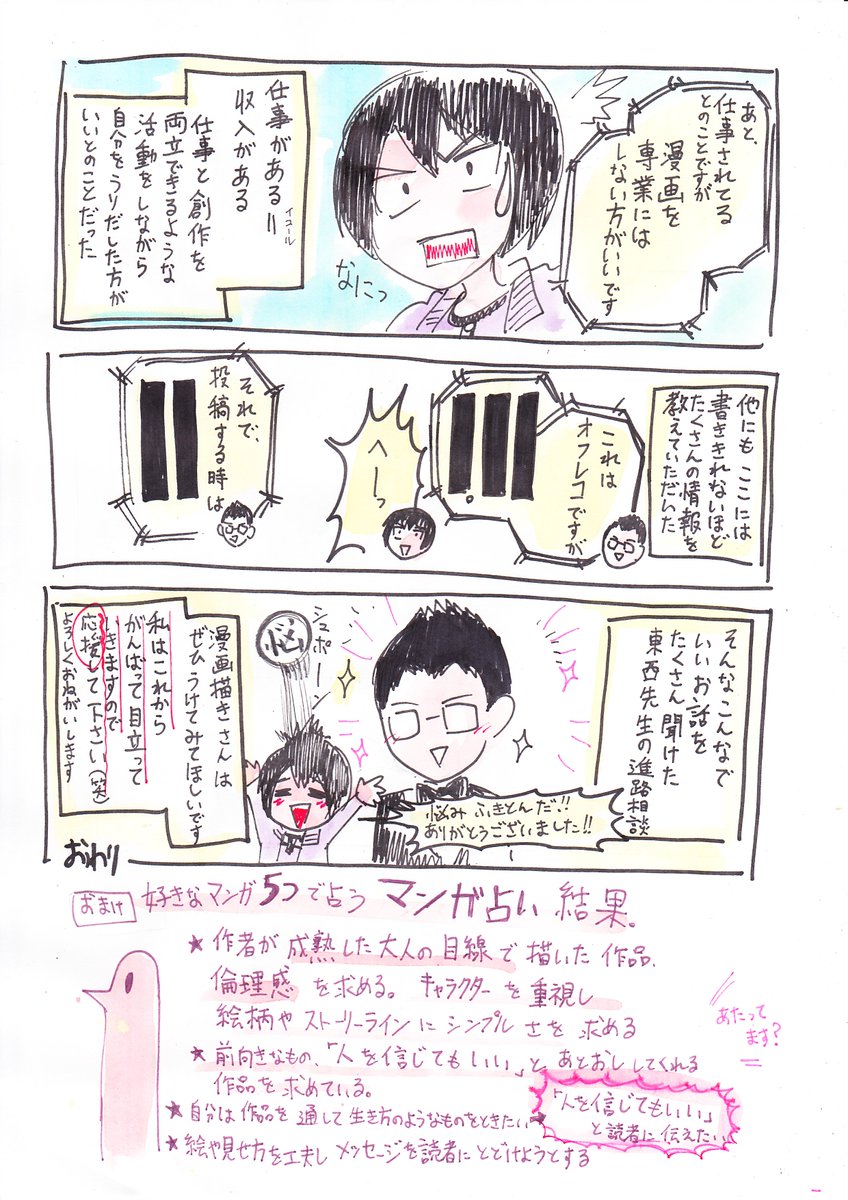 あと、
仕事されてる
とのことですが
漫画を
専業には
しない方がいいです
なにっ
仕事がある=
イコール
収入がある
仕事と創作を
両立できるような
活動をしながら
自分をうりだした方が
いいとのことだった
他にも ここには
書ききれないほど
たくさんの情報を
教えていただいた
これは
オフレコですが
へーっ
それで、
投稿する時は
そんなこんなで
いいお話を
たくさん聞けた
東西先生の進路相談
シュポーン
悩
悩みふきとんだ!!
ありがとうございました!!
漫画描きさんは
ぜひうけてみてほしいです
私はこれから
がんばって目立って
いきますので
応援して下さい(笑)
よろしくおねがいします
おわり
おまけ 好きなマンガ5つで占う マンガ占い 結果。
★作者が成熟した大人の目線で描いた作品、
倫理感を求める。キャラクターを重視し
絵柄やストーリーラインにシンプルさを求める
★前向きなもの、「人を信じてもいい」とあとおししてくれる
作品を求めている。
★自分は作品を通して生き方のようなものをときたい→
「人を信じてもいい」
と読者に伝えたい
★絵や見せ方を工夫しメッセージを読者にとどけようとする
あたって
ます?